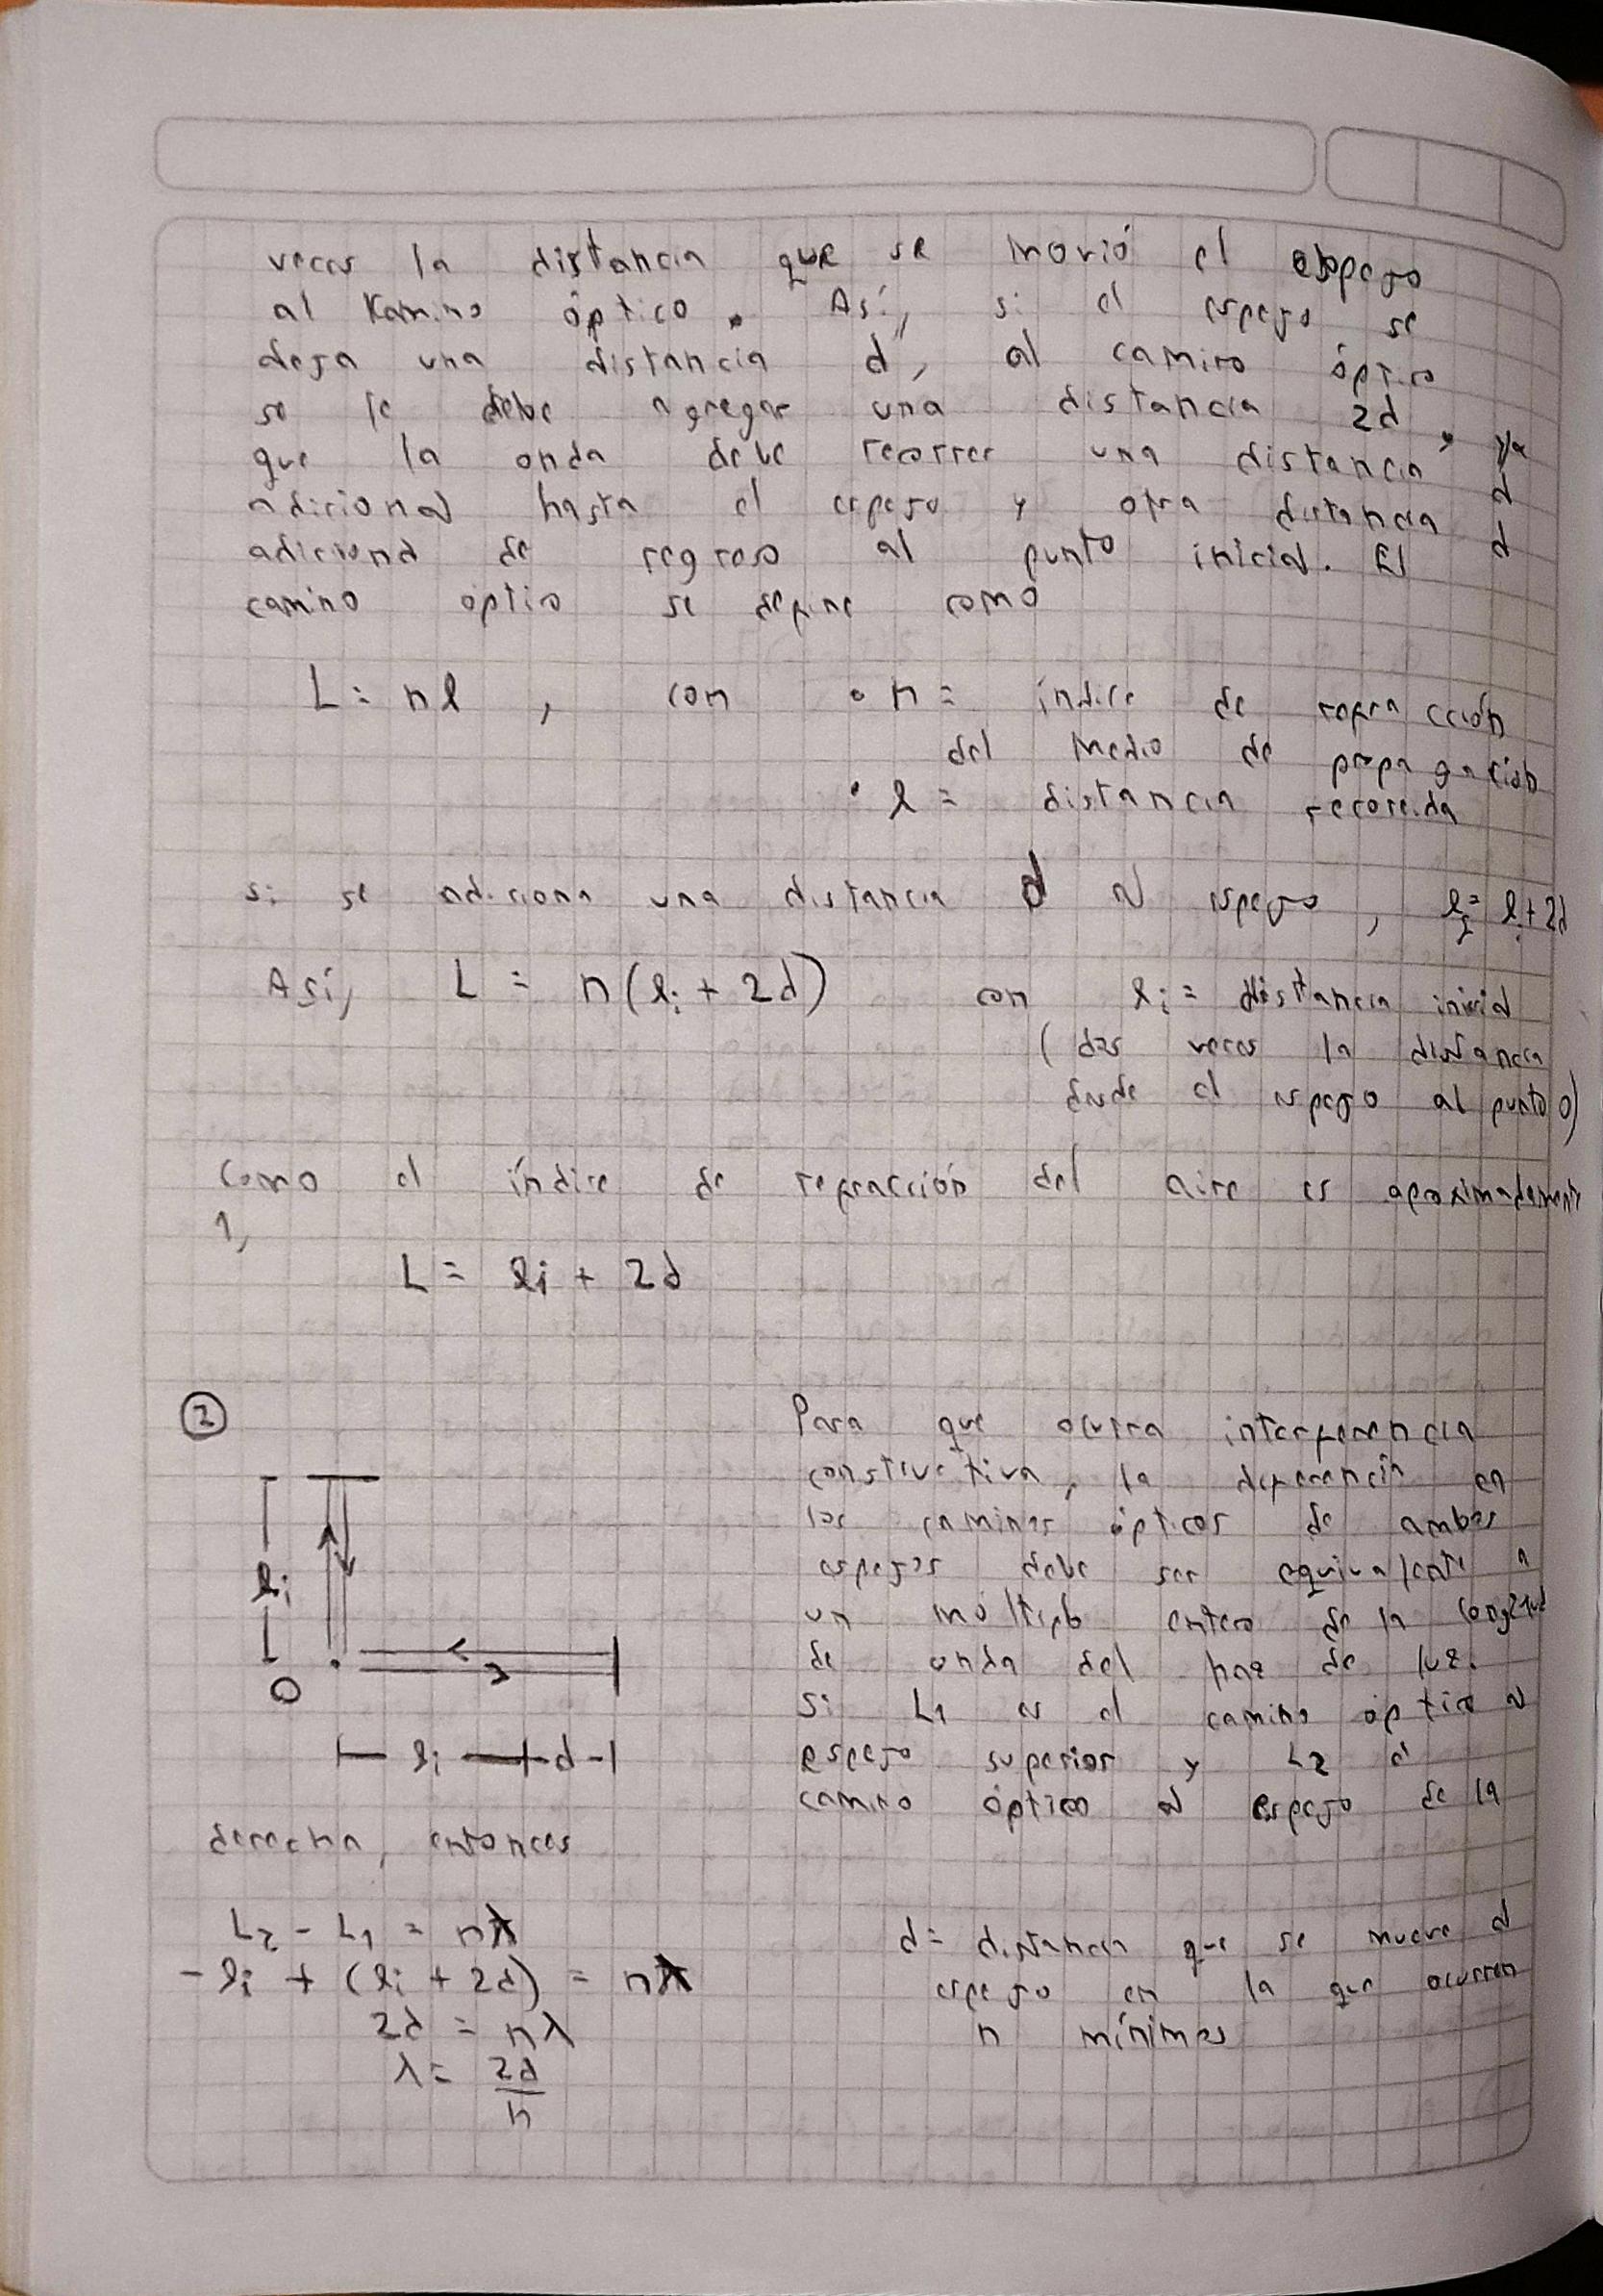 veces la distancia que se movió el espejo
al Kamino óptico. Así, si el espejo se
deja una distancia d, al camino óptico
se le debe agregar una distancia 2d, ya
que la onda debe recorrer una distancia d
adicional hasta el espejo y otra distancia d
adicional de regreso al punto inicial. El
camino optio se define como
L = nl , con • n = índice de refracción
del medio de propagación
• l = distancia recorrida
si se adiciona una distancia d al espejo, l_f = l_i + 2d
Así, L = n(l_i + 2d) con l_i = distancia inicial
(dos veces la distancia
desde el espejo al punto 0)
Como el índice de refracción del aire es aproximadamente
1,
L = l_i + 2d
②
Para que ocurra interferencia
constructiva, la diferencia en
los caminos ópticos de ambos
espejos debe ser equivalente a
un múltiplo entero de la longitud
de onda del haz de luz.
Si L1 es el camino óptico al
espejo superior y L2 el
camino óptico al espejo de la
l_i
O
l_i d
derecha, entonces
L2 - L1 = nλ
-l_i + (l_i + 2d) = nλ
2d = nλ
λ = 2d/n
d = distancia que se mueve el
espejo en la que ocurren
n mínimos